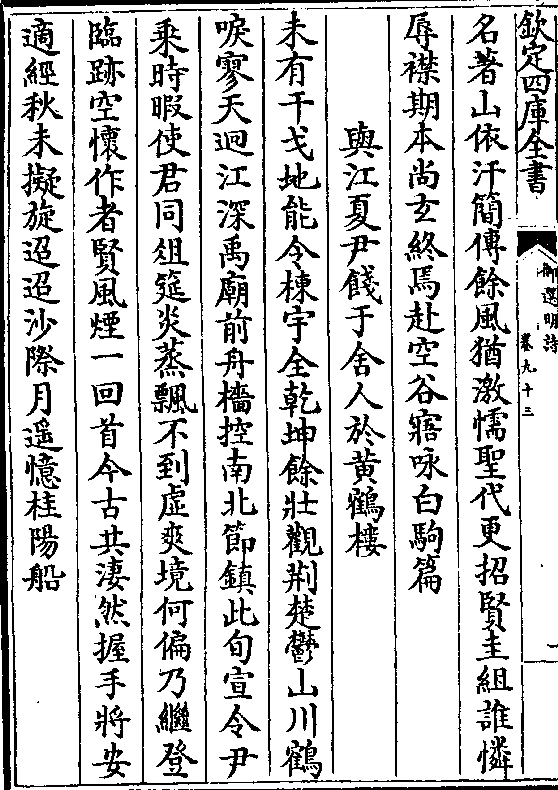 欽定四庫全書
御選明詩
卷九十三
一
名著山依汗簡傳餘風猶激懦聖代更招賢圭組誰憐
辱襟期本尚玄終焉赴空谷寤咏白駒篇
與江夏尹餞于舍人於黄鶴樓
未有干戈地能令棟宇全乾坤餘壯觀荆楚鬱山川鶴
唳寥天迥江深禹廟前舟檣控南北節鎮此旬宣令尹
乗時暇使君同俎筵炎蒸飄不到虚爽境何偏乃繼登
臨跡空懷作者賢風煙一回首今古共淒然握手將安
適經秋未擬旋迢迢沙際月遥憶桂陽船